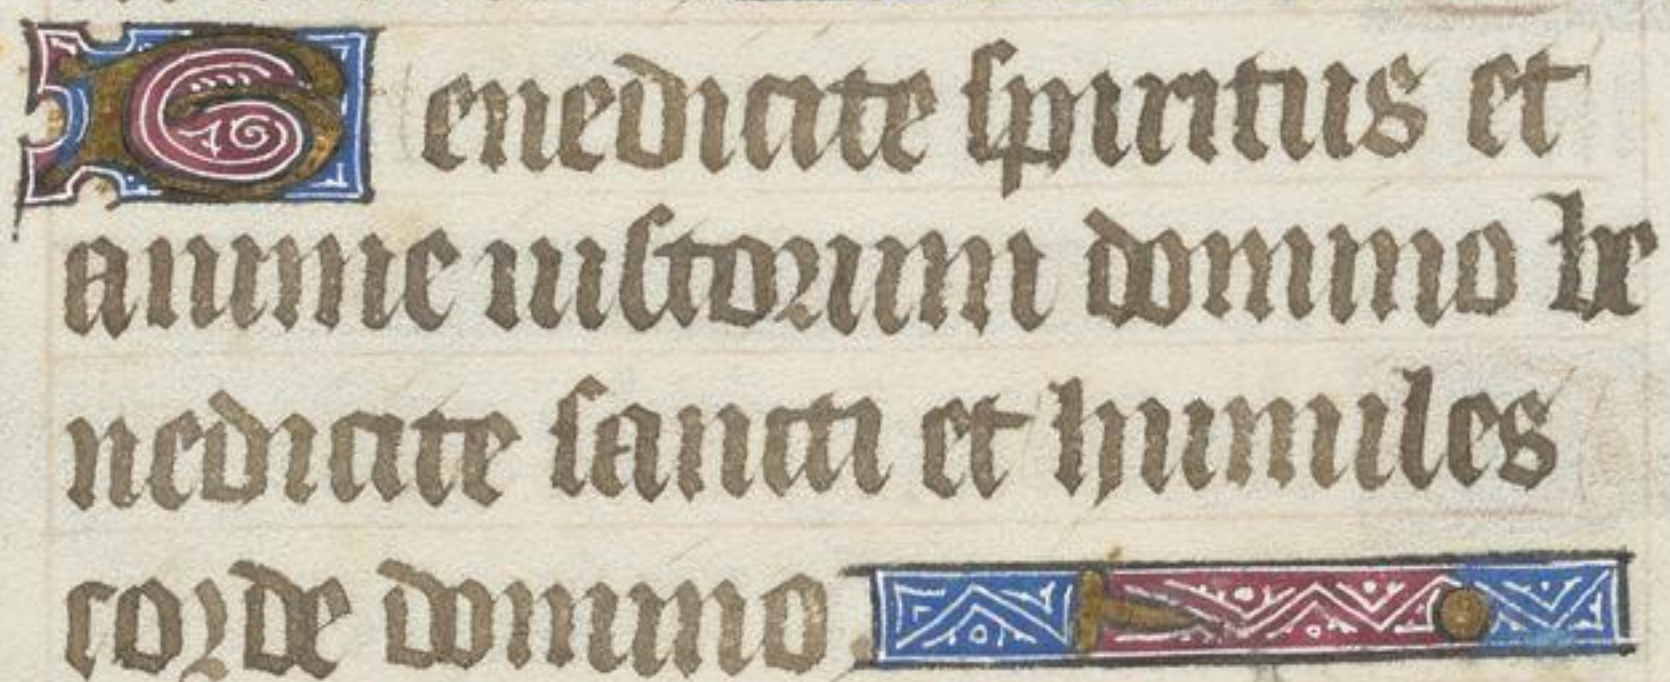 Benedicite spiritus et
anime iustorum domino be
nedicite sancti et humiles
corde domino.